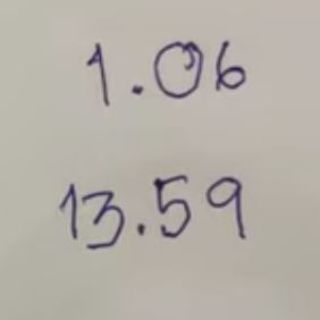 1.06
13.59